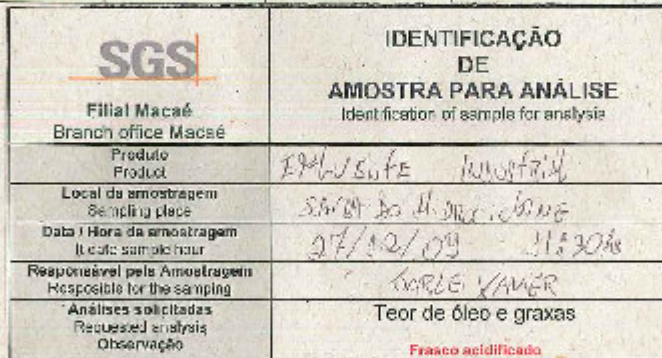 SGS
Filial Macaé
Branch office Macaé
IDENTIFICAÇÃO
DE
AMOSTRA PARA ANÁLISE
Identification of sample for analysis
Produto
Product
INDUSTRIAL
Local da amostragem
Sampling place
SAÍDA DO
Data / Hora da amostragem
sample hour
27/12/09 11:30hs
Responsável pela Amostragem
Resposible for the sampling
XAVIER
Análises solicitadas
Requested analysis
Observação
Teor de óleo e graxas
Frasco acidificado